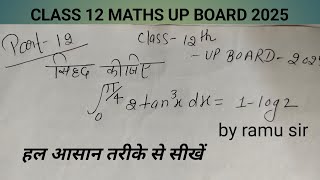 CLASS 12 MATHS UP BOARD 2025
Part-12
Class-12th
-UP BOARD-202
सिद्ध कीजिए
∫₀^π/4 2tan³x dx = 1-log2
by ramu sir
हल आसान तरीके से सीखें